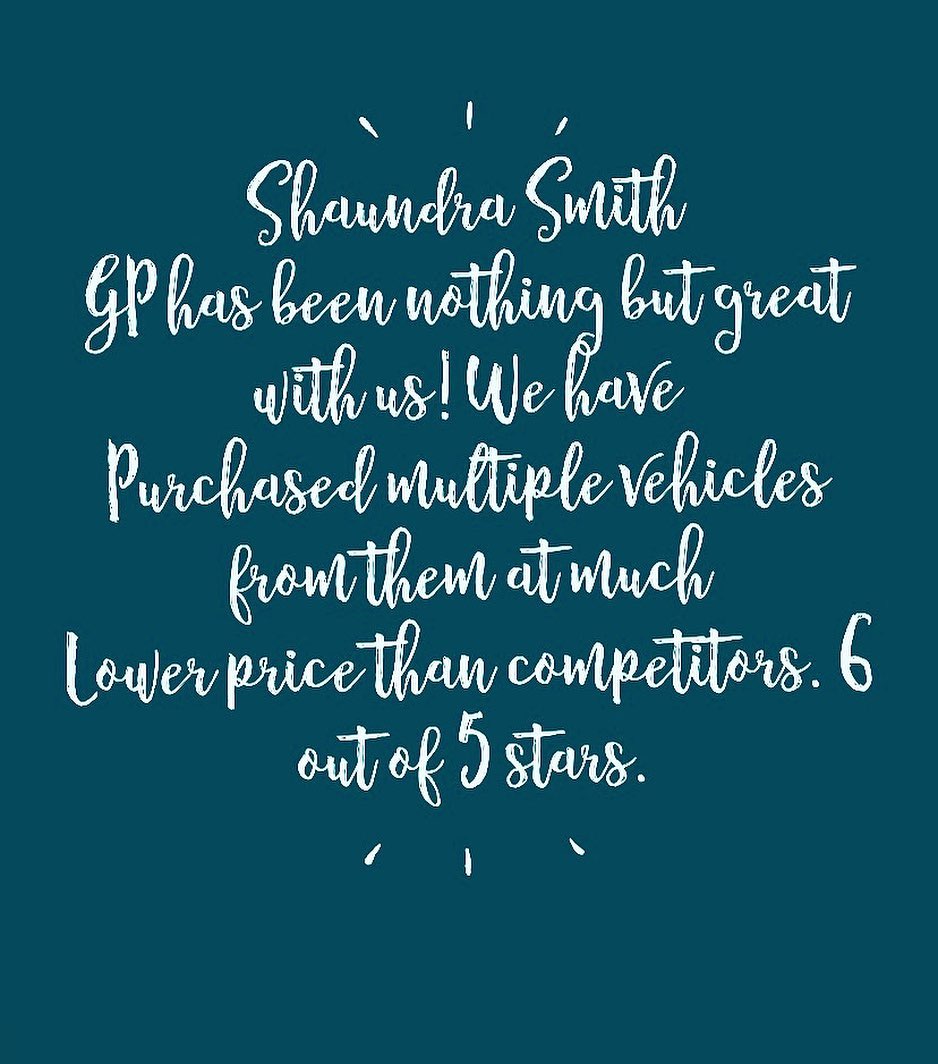 Shaundra Smith
GP has been nothing but great
with us! We have
Purchased multiple vehicles
from them at much
Lower price than competitors. 6
out of 5 stars.